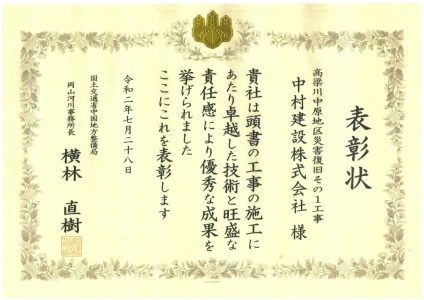 表彰状
高梁川中原地区災害復旧その1工事
中村建設株式会社 様
貴社は頭書の工事の施工に
あたり卓越した技術と旺盛な
責任感により優秀な成果を
挙げられました
ここにこれを表彰します
令和二年七月二十八日
国土交通省中国地方整備局
岡山河川事務所長 横林 直樹